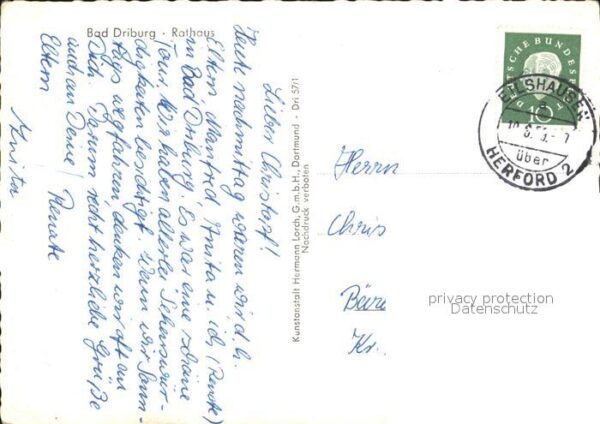 Bad Driburg · Rathaus
Lieber Christof!
Heute nachmittag waren wir d. h.
Eltern, Manfred, Anita u. ich, (Renate)
in Bad Driburg. Es war eine schöne
Tour. Wir haben allerlei Sehenswür-
digkeiten besichtigt. Wenn wir Sonn-
tags wegfahren, denken wir oft an
Dich. Darum recht herzliche Grüße
auch an Deine Renate
Eltern
Anita
Kunstanstalt Hermann Lorch, G.m.b.H., Dortmund - Dri 57/1
Nachdruck verboten
DEUTSCHE BUNDESPOST
10
EILSHAUSEN
a
über
HERFORD 2
Herrn
Chris
Kr.
privacy protection
Datenschutz